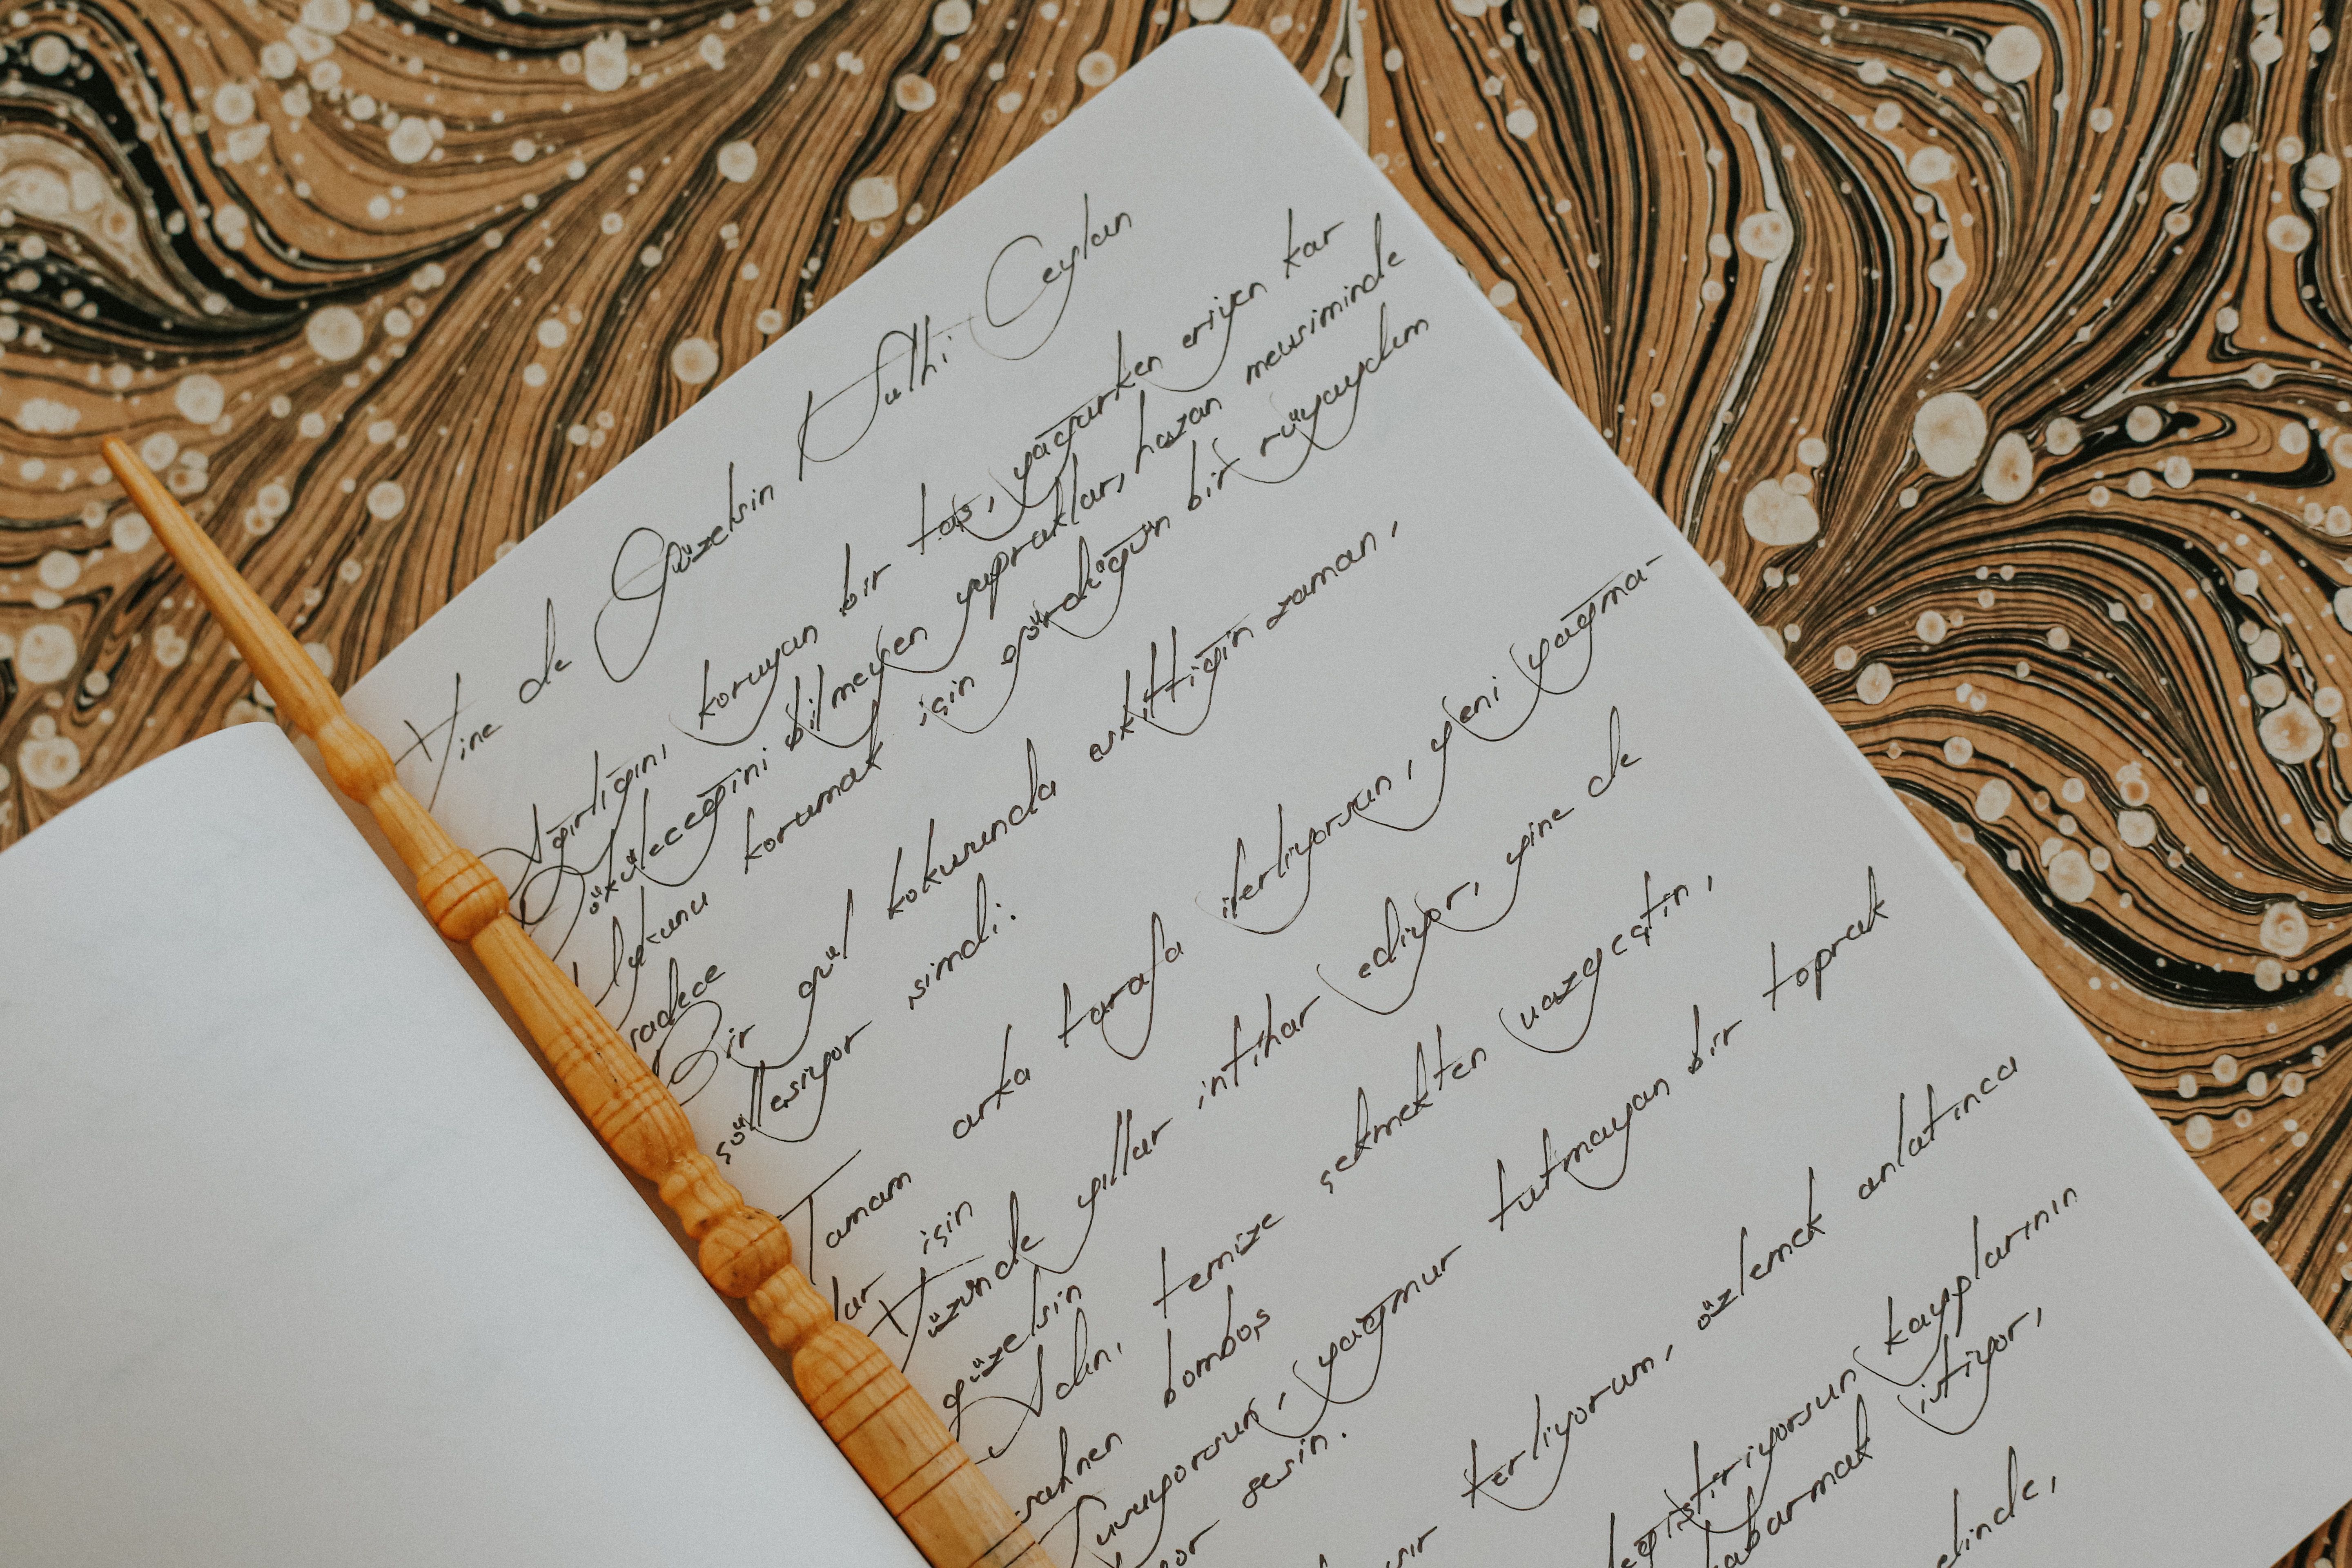 Yine de Güzelsin Fethi Ceylan
Ağırlığını koruyan bir taş, yağarken eriyen kar
Döküleceğini bilmeyen yapraklar, hazan mevsiminde
Uykunu korumak için gördüğün bir rüyaydım
sadece
Bir gül kokusunda eskittiğin zaman,
çölleşiyor şimdi:
Tamam arka tarafa ilerliyorsun, yeni yağma-
lar için
Yüzünde yıllar intihar ediyor, yine de
güzelsin
Adın, temize çekmekten vazgeçtin,
sahnen bomboş
yağmur tutmayan bir toprak
sesin.
terliyorum, özlemek anlatınca
değiştiriyorsun kayıplarının
kabarmak istiyor,
elinde,